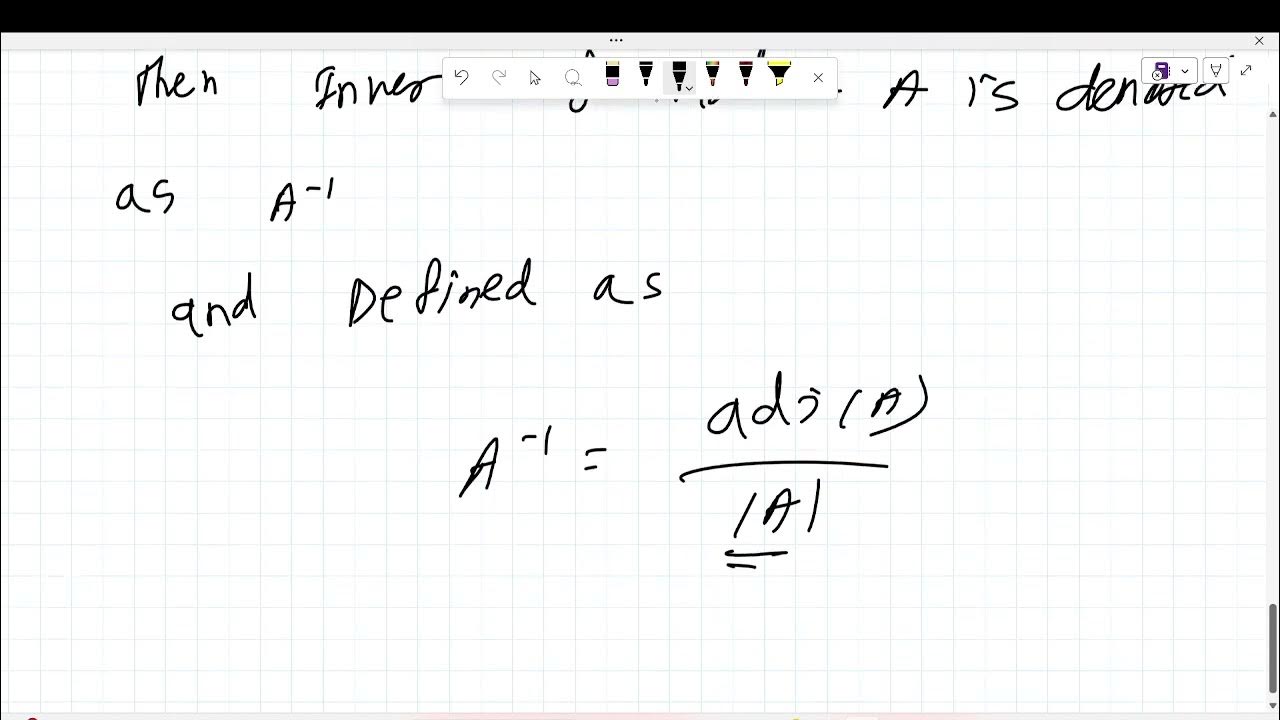 Then Inver A is denoted
as A⁻¹
and Defined as
A⁻¹ = adj(A) / |A|